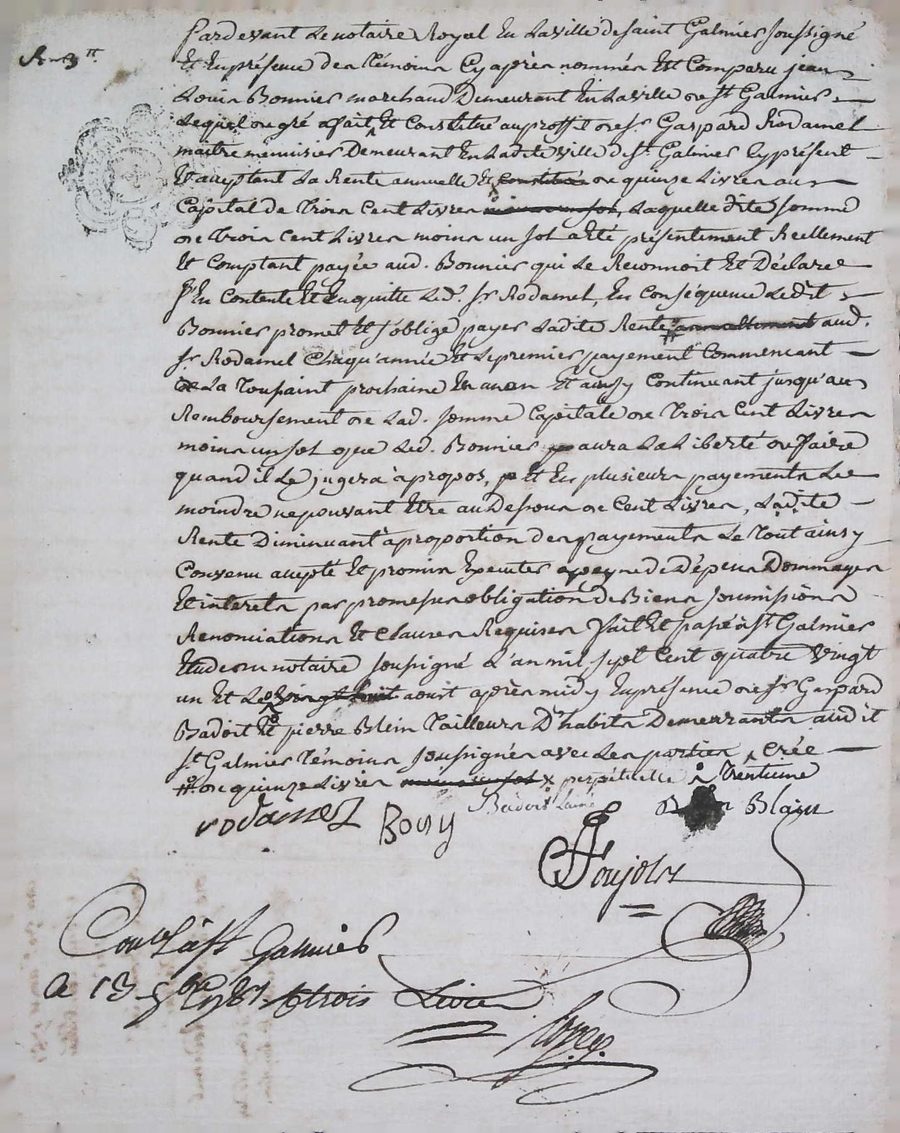 R. 3 tt.
Pardevant Le notaire Royal En La ville de saint Galmier soussigné
Et En présence des témoins Cy après nommés Est Comparu jean
Louis Bonnier marchand Demeurant En La ville de st. Galmier
Lequel de gré a fait Et Constitué au proffit de sr. Gaspard Rodamel
maitre menuisier Demeurant En Ladite ville de st. Galmier Cy présent
Et aceptant La Rente annuelle Et constituée de quinze Livres au
Capital de trois Cent Livres moins un sol, Laquelle dite somme
de trois Cent Livres moins un sol a Eté présentement Réellement
Et Comptant payée aud. Bonnier qui Le Reconnoit Et Déclare
s'En Contente Et En quitte Led. sr Rodamel, En Conséquence Ledit
Bonnier promet Et s'oblige payer Ladite Rente annuellement aud.
sr. Rodamel Chaqu'année Et Le premier payement Commencant
de La toussaint prochaine En un an Et ainsy Continuant jusqu'au
Remboursement de Lad. somme Capitale de trois Cent Livres
moins un sol que Led. Bonnier aura La Liberté de faire
quand il Le jugera à propos, Et En plusieurs payements Le
moindre ne pouvant Etre au Dessous de Cent Livres, Ladite
Rente Diminuant a proportion des payements Le tout ainsy
Convenu acepté Et promis Executer a peyne de Dépens Dommages
Et interets par promesse obligation de Biens soumissions
Renonciations Et Clauses Requises fait Et passé à st. Galmier
Etude du notaire soussigné L'an mil sept Cent quatre vingt
un Et Le vingt huit aoust après midy En présence de srs Gaspard
Badoit Et pierre Blein tailleurs D'habits Demeurants audit
st. Galmier témoins soussignés avec Les parties, Crée
de quinze Livres moins un sol x perpétuelle trentieme
rodamel Bony Badoit Lainé Blain
Poujolz
Conlé à St Galmier
a 13 7bre 1781 R trois Livres